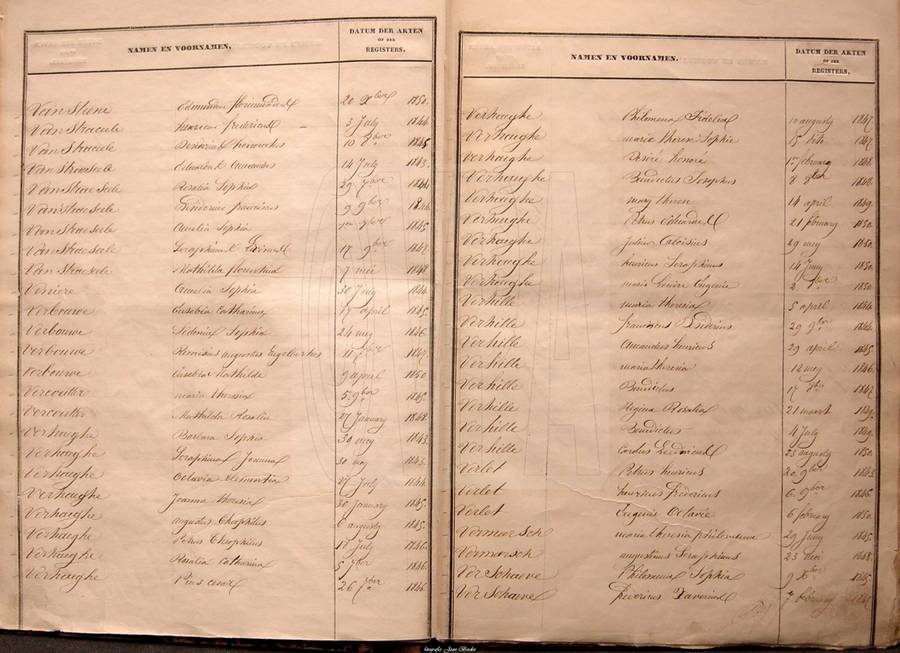 NAMEN EN VOORNAMEN. DATUM DER AKTEN
OF DER
REGISTERS.
Van Staene Edmundus florimondus 20 Xber 1850.
Van Straeseele henricus fredericus 3 July 1844
Van Straeseele Desiderius 10 1845
Van Straeseele Eduardus Amandus 14 July 1843.
Van Straeseele Rosalia Sophia 29 7bre 1844
Van Straeseele Desiderius franciscus 9 9bre 1844
Van Straeseele Amelia Sophia 1845
Van Straeseele Seraphinus 17 9bre 1847
Van Straeseele Mathilda florentina 7 mei 1848
Veniere Amelia Sophia 30 July 1844
Verbouwe Eusebia Catharina 17 april 1845
Verbouwe Sidonia Sophia 24 mey 1846
Verbouwe Remisius augustus Engelbertus 11 1847.
Verbouwe Eusebia Mathilde 9 april 1850
Vercoutter maria theresia 5 9ber 1845
Vercoutter Mathilda Rosalia 27 January 1848.
Verhaeghe Barbara Sophia 30 mey 1843.
Verhaeghe Seraphina Joanna 30 mey 1843.
Verhaeghe Octavia Clementia 27 July 1844
Verhaeghe Joanna theresia 30 january 1845.
Verhaeghe augustus Theophilus 6 augusty 1845.
Verhaeghe Petrus Theophilus 18 July 1846.
Verhaeghe Rosalia Catharina 5 7ber 1846.
Verhaeghe Pius 26 7ber 1846
NAMEN EN VOORNAMEN. DATUM DER AKTEN
OF DER
REGISTERS.
Verhaeghe Philomena Fidelia 10 augusty 1847.
Verhaeghe maria theresia Sophie 15 1847
Verhaeghe Désiré honoré 15 february 1848.
Verhaeghe Benedictus Josephus 8 9ber 1848
Verhaeghe mary theresia 14 april 1849.
Verhaeghe Petrus Eduardus 21 february 1850.
Verhaeghe Julius Aloisius 29 mey 1850.
Verhaeghe henricus Seraphinus 14 Juny 1850.
Verhaeghe marie Louise Eugenie 2 1850
Verhille maria theresia 5 april 1844
Verhille franciscus Desiderius 29 9ber 1844.
Verhille Amandus henricus 29 april 1845
Verhille maria theresia 12 mey 1846.
Verhille Benedictus 17 1847
Verhille Regina Rosalia 21 maart 1849.
Verhille Benedictus 4 July 1849.
Verhille Ludovicus 23 augusty 1850.
Verlet Petrus henricus 20 9ber 1843
Verlet henricus fredericus 6 9ber 1846
Verlet Eugenie Octavie 6 february 1850.
Vermersch maria theresia philomena 29 juny 1845
Vermersch augustinus Seraphinus 23 mei 1848.
VerSchaeve Philomena Sophia 9 Xber 1845
VerSchaeve Severinus Xaverius 7 february
fotografie Joan Backx